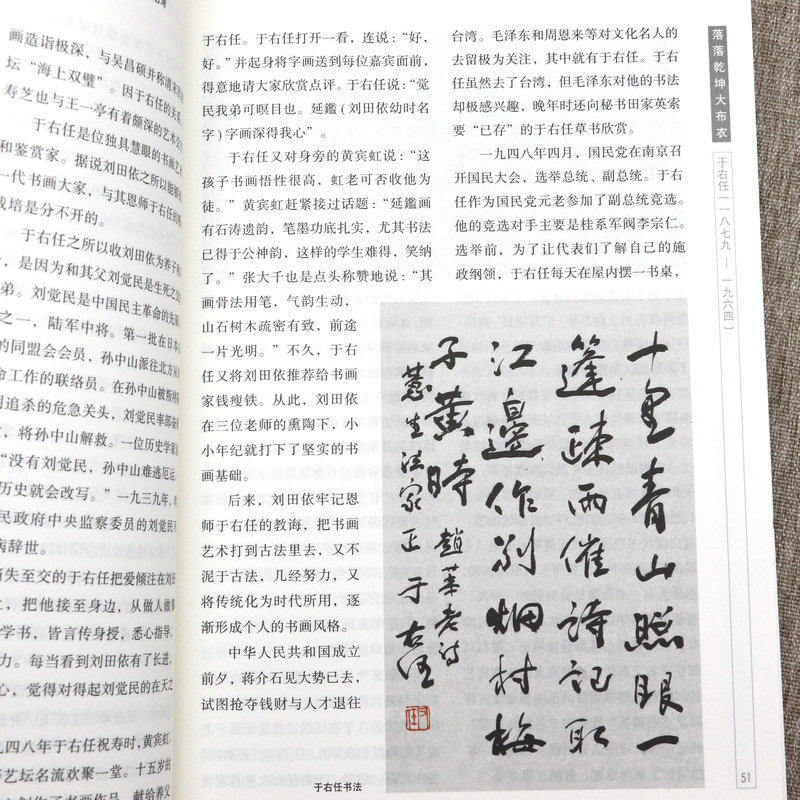 画造诣极深，与吴昌硕并称清末
坛“海上双璧”。因于右任的关系
寿芝也与王一亭有着颇深的艺术交
于右任是位独具慧眼的书画艺
和鉴赏家。据说刘田依之所以能够
一代书画大家，与其恩师于右任的
栽培是分不开的。
于右任之所以收刘田依为养子
，是因为和其父刘觉民是生死之
弟。刘觉民是中国民主革命的先
之一，陆军中将。第一批在日本
的同盟会会员，孙中山派往北方从
命工作的联络员。在孙中山被斯特
追杀的危急关头，刘觉民率部
，将孙中山解救。一位历史学家
“没有刘觉民，孙中山难逃厄运，
历史就会改写。”一九三九年，
民政府中央监察委员的刘觉民
病辞世。
失至交的于右任把爱倾注在刘田
上，把他接至身边，从做人做事
学书，皆言传身授，悉心指导，
力。每当看到刘田依有了长进，
心，觉得对得起刘觉民的在天之
九四八年于右任祝寿时，黄宾虹、
艺坛名流欢聚一堂。十五岁的
力创作了书画作品，献给养父
于右任。于右任打开一看，连说：“好，
好。”并起身将字画送到每位嘉宾面前，
得意地请大家欣赏点评。于右任说：“觉
民我弟可瞑目也。延鑑（刘田依幼时名
字）字画深得我心”。
于右任又对身旁的黄宾虹说：“这
孩子书画悟性很高，虹老可否收他为
徒。”黄宾虹赶紧接过话题：“延鑑画
有石涛遗韵，笔墨功底扎实，尤其书法
已得于公神韵，这样的学生难得，笑纳
了。”张大千也是点头称赞地说：“其
画骨法用笔，气韵生动，
山石树木疏密有致，前途
一片光明。”不久，于右
任又将刘田依推荐给书画
家钱瘦铁。从此，刘田依
在三位老师的熏陶下，小
小年纪就打下了坚实的书
画基础。
后来，刘田依牢记恩
师于右任的教诲，把书画
艺术打到古法里去，又不
泥于古法，几经努力，又
将传统化为时代所用，逐
渐形成个人的书画风格。
中华人民共和国成立
前夕，蒋介石见大势已去，
试图抢夺钱财与人才退往
台湾。毛泽东和周恩来等对文化名人的
去留极为关注，其中就有于右任。于右
任虽然去了台湾，但毛泽东对他的书法
却极感兴趣，晚年时还向秘书田家英索
要“已存”的于右任草书欣赏。
一九四八年四月，国民党在南京召
开国民大会，选举总统、副总统。于右
任作为国民党元老参加了副总统竞选。
他的竞选对手主要是桂系军阀李宗仁。
选举前，为了让代表们了解自己的施
政纲领，于右任每天在屋内摆一书桌，
十里青山照眼一
篷踈雨催詩記取
江邊作别烟村梅
子黄時
慧生法家正 于右任
于右任书法
落落乾坤大布衣
于右任（一八七九—一九六四）
51